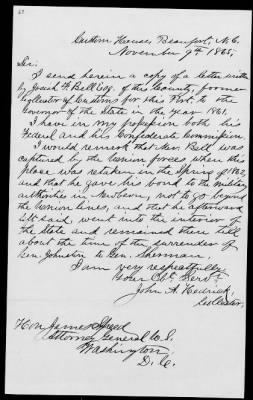 Custom House, Beaufort, N.C.
November 9th 1865,
Sir:
I send herein a copy of a letter written
by Josiah F. Bell Esq. of this County, former
Collector of Customs for this Port, to the
Governor of the State in the year 1861.
I have in my possession both his
Federal and his Confederate Commission.
I would remark that Mr. Bell was
captured by the Union forces when this
place was retaken in the Spring of 1862,
and that he gave his bond to the military
authorities in Newbern, not to go beyond
the Union lines, and that he afterward
left, went into the interior of
the State and remained there till
about the time of the surrender of
Gen. Johnston to Gen. Sherman.
I am very respectfully
Your Obt. Servt.
John A. Hedrick,
Collector.
Hon James Speed
Attorney General U.S.
Washington
D.C.